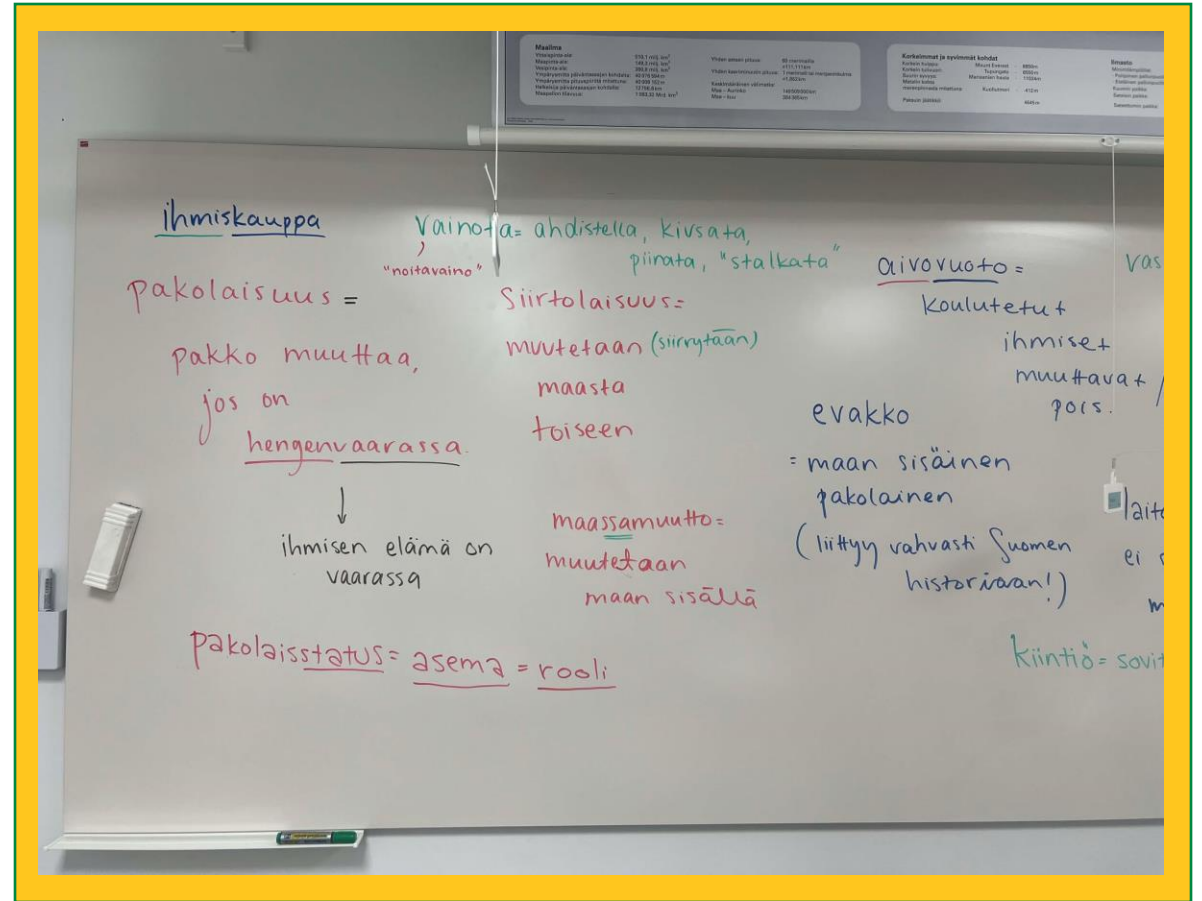 Maailma
Korkeimmat ja syvimmät kohdat
ihmiskauppa
vainota = ahdistella, kiusata,
piinata, "stalkata"
"noitavaino"
pakolaisuus =
pakko muuttaa,
jos on
hengenvaarassa.
ihmisen elämä on
vaarassa
Siirtolaisuus =
muutetaan (siirrytään)
maasta
toiseen
maassamuutto =
muutetaan
maan sisällä
aivovuoto =
koulutetut
ihmiset
muuttavat
pois.
evakko
= maan sisäinen
pakolainen
(liittyy vahvasti Suomen
historiaan!)
vas
laito
ei
m
kiintiö = sovit
pakolaisstatus = asema = rooli